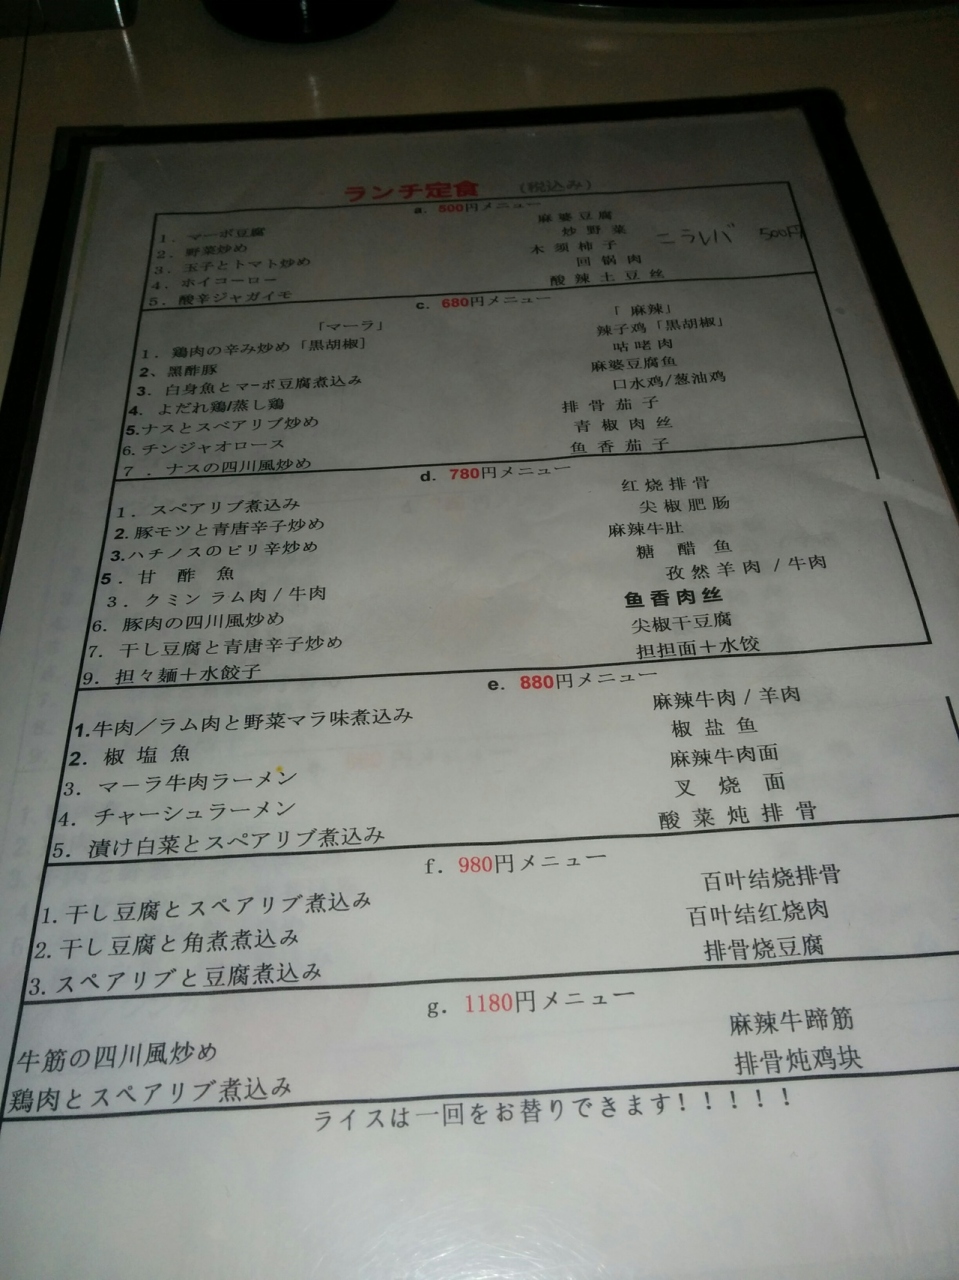 ランチ定食 (税込み)
a. 500円メニュー
1. マーボ豆腐 麻婆豆腐
2. 野菜炒め 炒野菜
3. 玉子とトマト炒め 木须柿子
ニラレバ 500円
4. ホイコーロー 回锅肉
5. 酸辛ジャガイモ 酸辣土豆丝
c. 680円メニュー
「マーラ」 「麻辣」
1. 鶏肉の辛み炒め「黒胡椒] 辣子鸡「黑胡椒」
2、黑酢豚 咕咾肉
3. 白身魚とマーボ豆腐煮込み 麻婆豆腐鱼
4. よだれ鶏/蒸し鶏 口水鸡/葱油鸡
5.ナスとスペアリブ炒め 排骨茄子
6. チンジャオロース 青椒肉丝
7 . ナスの四川風炒め 鱼香茄子
d. 780円メニュー
1. スペアリブ煮込み 红烧排骨
2. 豚モツと青唐辛子炒め 尖椒肥肠
3.ハチノスのピリ辛炒め 麻辣牛肚
5. 甘酢魚 糖醋鱼
3. クミン ラム肉 / 牛肉 孜然羊肉 / 牛肉
6. 豚肉の四川風炒め 鱼香肉丝
7. 干し豆腐と青唐辛子炒め 尖椒干豆腐
9. 担々麺＋水餃子 担担面＋水饺
e. 880円メニュー
1.牛肉／ラム肉と野菜マラ味煮込み 麻辣牛肉 / 羊肉
2. 椒塩魚 椒盐鱼
3. マーラ牛肉ラーメン 麻辣牛肉面
4. チャーシュラーメン 叉烧面
5. 漬け白菜とスペアリブ煮込み 酸菜炖排骨
f. 980円メニュー
1. 干し豆腐とスペアリブ煮込み 百叶结烧排骨
2. 干し豆腐と角煮煮込み 百叶结红烧肉
3. スペアリブと豆腐煮込み 排骨烧豆腐
g. 1180円メニュー
牛筋の四川風炒め 麻辣牛蹄筋
鶏肉とスペアリブ煮込み 排骨炖鸡块
ライスは一回をお替りできます！！！！！